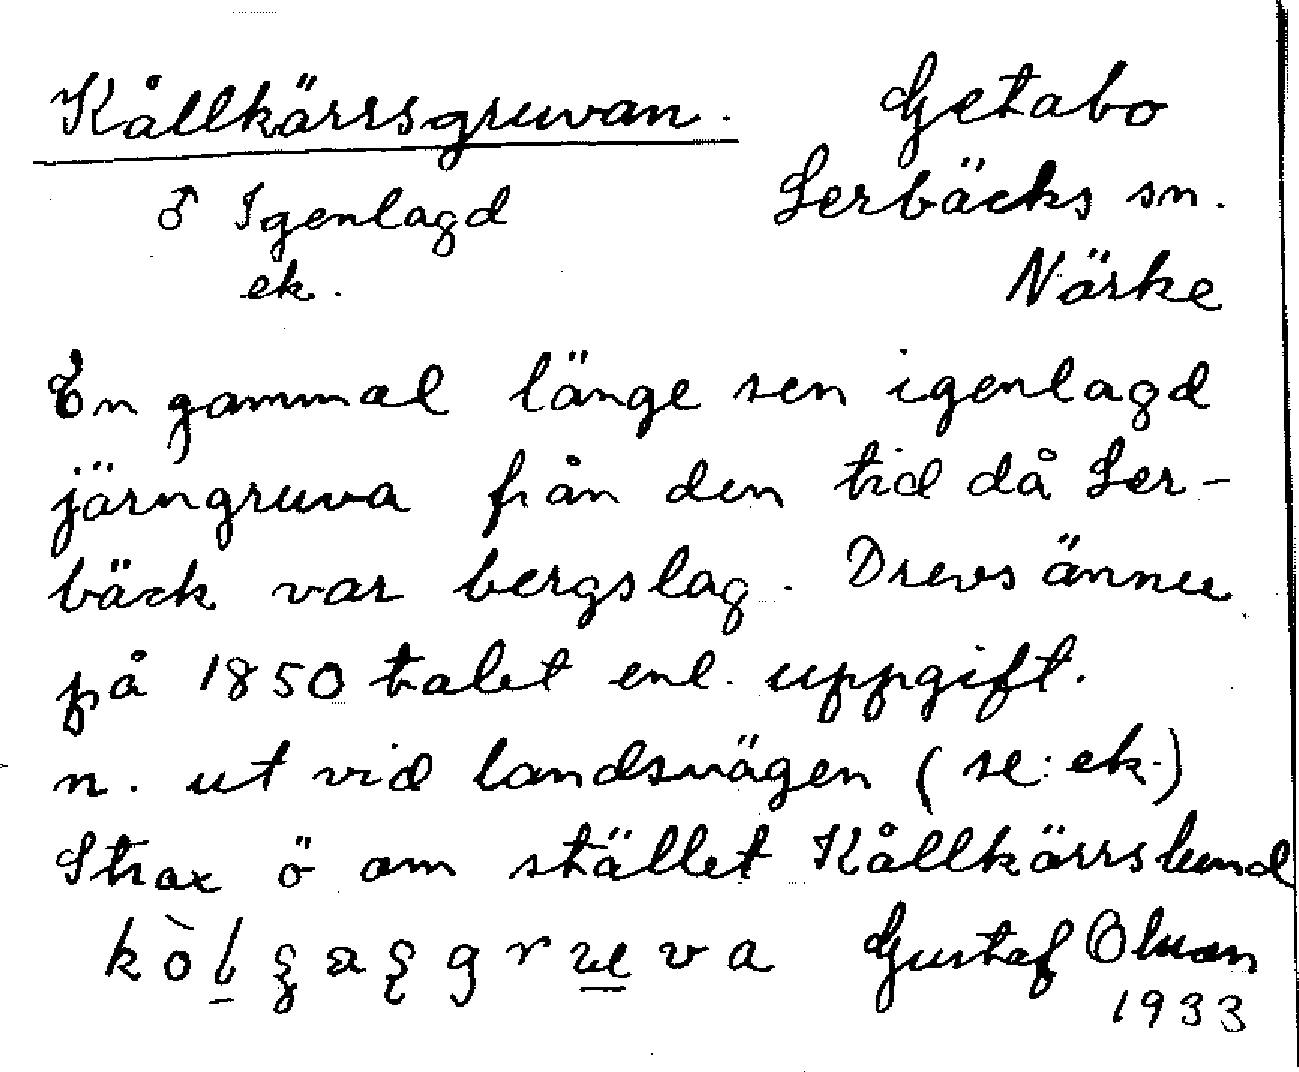 Kållkärrsgruvan. Getabo
♂ Igenlagd Lerbäcks sn.
ek. Närke
En gammal länge sen igenlagd
järngruva från den tid då Ler-
bäck var bergslag. Drevs ännu
på 1850 talet enl. uppgift.
n. ut vid landsvägen (se: ek.)
Strax ö om stället Kållkärrslund
Gustaf Olsson
1933